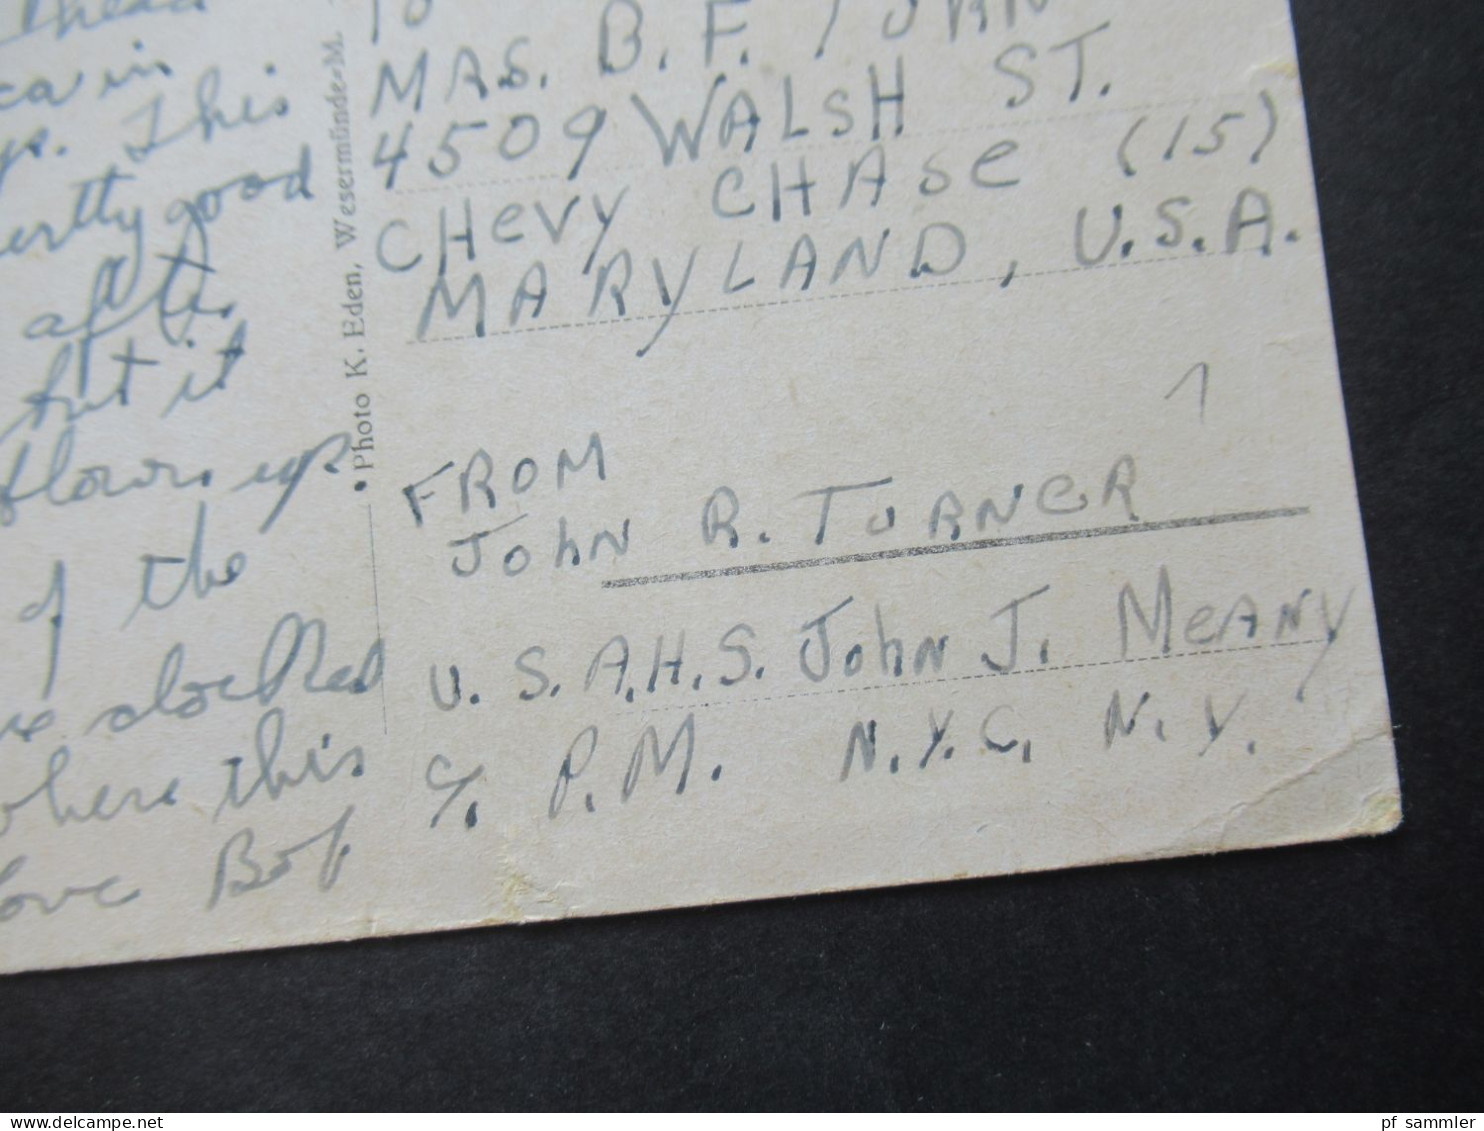 ca in
This
good
after
but it
flown up
of the
docked
where this
love Bob.
• Photo K. Eden, Wesermünde-M.
TO
MRS. B. F.
4509 WALSH ST.
CHEVY CHASE (15)
MARYLAND, U.S.A.
1
FROM
JOHN R. TURNER
U.S.A.H.S. JOHN J. MEANY
c/. P.M. N.Y.C. N.Y.
pf sammler